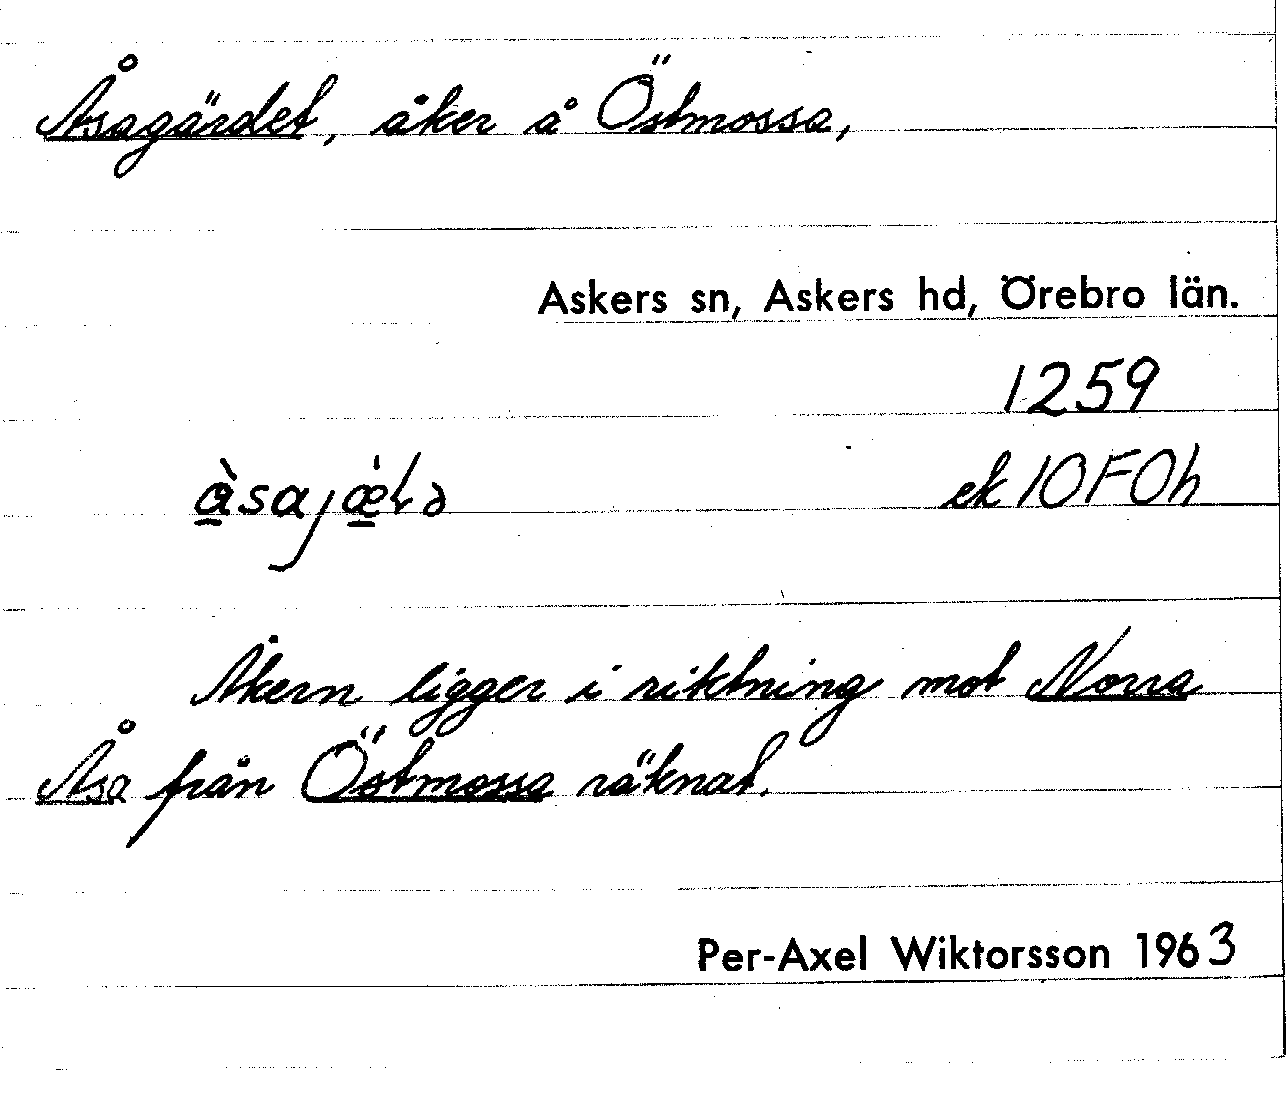 Åsagärdet, åker å Östmossa,
Askers sn, Askers hd, Örebro län.
1259
ek 10F0h
Åkern ligger i riktning mot Norra
Åsa från Östmossa räknat.
Per-Axel Wiktorsson 1963